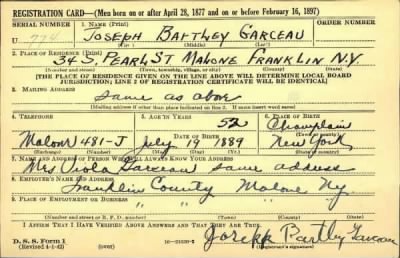 REGISTRATION CARD—(Men born on or after April 28, 1877 and on or before February 16, 1897)
SERIAL NUMBER 1. NAME (Print)
U 774 JOSEPH BARTLEY GARCEAU
(First) (Middle) (Last)
2. PLACE OF RESIDENCE (Print)
34 S. PEARL ST MALONE FRANKLIN N.Y.
(Number and street) (Town, township, village, or city) (County) (State)
[THE PLACE OF RESIDENCE GIVEN ON THE LINE ABOVE WILL DETERMINE LOCAL BOARD
JURISDICTION; LINE 2 OF REGISTRATION CERTIFICATE WILL BE IDENTICAL]
3. MAILING ADDRESS
same as above
[Mailing address if other than place indicated on line 2. If same insert word same]
4. TELEPHONE 5. AGE IN YEARS 6. PLACE OF BIRTH
52 Champlain
DATE OF BIRTH
Malone 481-J July 19 1889 New York
(Exchange) (Number) (Mo.) (Day) (Yr.) (State or country)
7. NAME AND ADDRESS OF PERSON WHO WILL ALWAYS KNOW YOUR ADDRESS
Mrs Viola Garceau same address
8. EMPLOYER'S NAME AND ADDRESS
Franklin County Malone Ny.
9. PLACE OF EMPLOYMENT OR BUSINESS
(Number and street or R. F. D. number) (Town) (County) (State)
I AFFIRM THAT I HAVE VERIFIED ABOVE ANSWERS AND THAT THEY ARE TRUE.
D. S. S. Form 1
(Revised 4-1-42) (over) Joseph Bartley Garceau
(Registrant's signature)